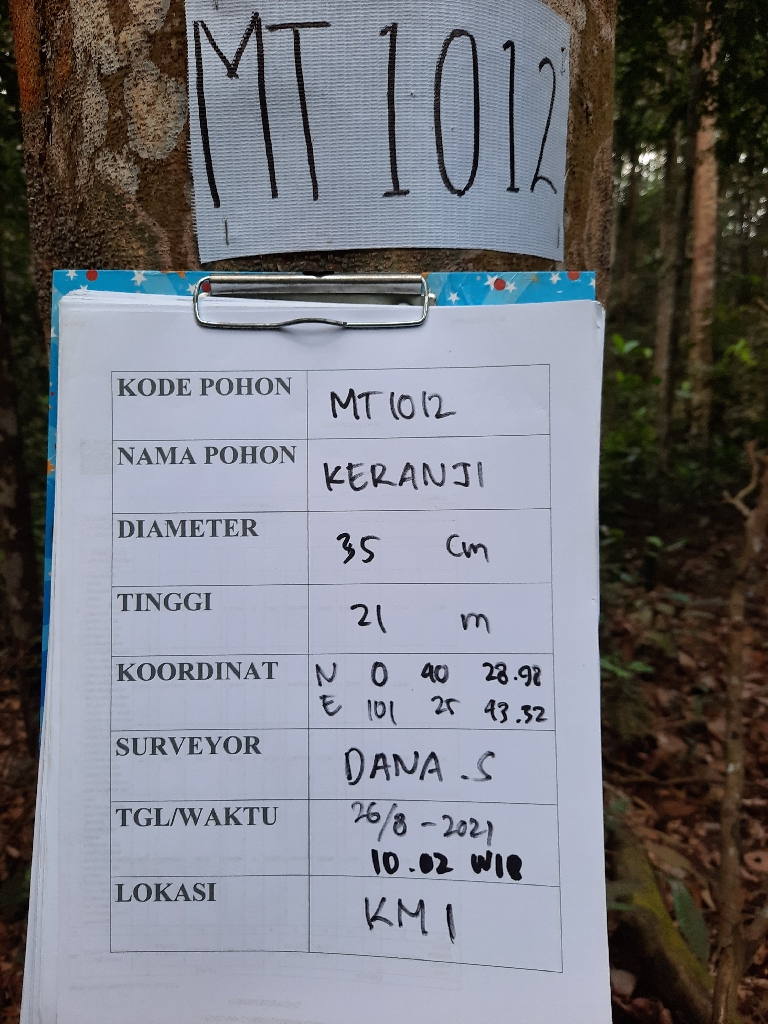 MT 1012
KODE POHON MT1012
NAMA POHON KERANJI
DIAMETER 35 Cm
TINGGI 21 m
KOORDINAT N 0 40 28.98
E 101 25 43.32
SURVEYOR DANA .S
TGL/WAKTU 26/8-2021
10.02 WIB
LOKASI KM 1